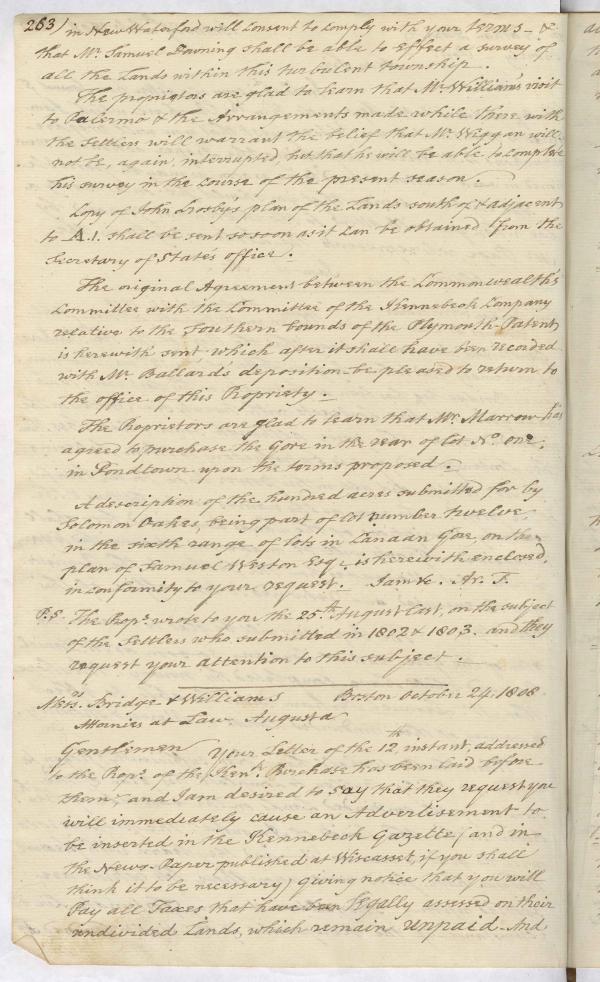 263) in New Waterford will consent to comply with your terms - &
that Mr. Samuel Downing shall be able to effect a survey of
all the Lands within this turbulent township.
The proprietors are glad to learn that Mr. Williams's visit
to Palermo & the Arrangements made while there with
the settlers will warrant the belief that Mr. Weggan will
not be, again, interrupted, but that he will be able to complete
his survey in the course of the present season.
Copy of John Crosby's plan of the Lands south of & adjacent
to A.1. shall be sent so soon as it can be obtained from the
Secretary of State's office.
The original Agreement between the Commonwealth's
Committee with the Committee of the Kennebeck Company
relative to the Southern bounds of the Plymouth Patent
is herewith sent which after it shall have been recorded
with Mr. Ballards deposition be pleased to return to
the office of this Propriety.
The Proprietors are glad to learn that Mr. Marrow has
agreed to purchase the Gore in the rear of lot No. one,
in Pondtown upon the terms proposed.
A description of the hundred acres submitted for by
Solomon Oakes, being part of lot number twelve
in the sixth range of lots in Canaan Gore, on the
plan of Samuel Weston Esq. is herewith enclosed,
in conformity to your request. I am &c. Ar. T.
P.S. The Props. wrote to you the 25th. August last, on the subject
of the Settlers who submitted in 1802 & 1803. and they
request your attention to this subject.
Messrs. Bridge & Williams Boston October 24. 1808
Attornies at Law, Augusta
Gentlemen Your Letter of the 12th. instant, addressed
to the Props. of the Kenn. Purchase has been laid before
them, and I am desired to say that they request you
will immediately cause an Advertisement to
be inserted in the Kennebeck Gazette (and in
the News-Paper published at Wiscasset, if you shall
think it to be necessary) giving notice that you will
Pay all Taxes that have been legally assessed on their
undivided Lands, which remain unpaid. And